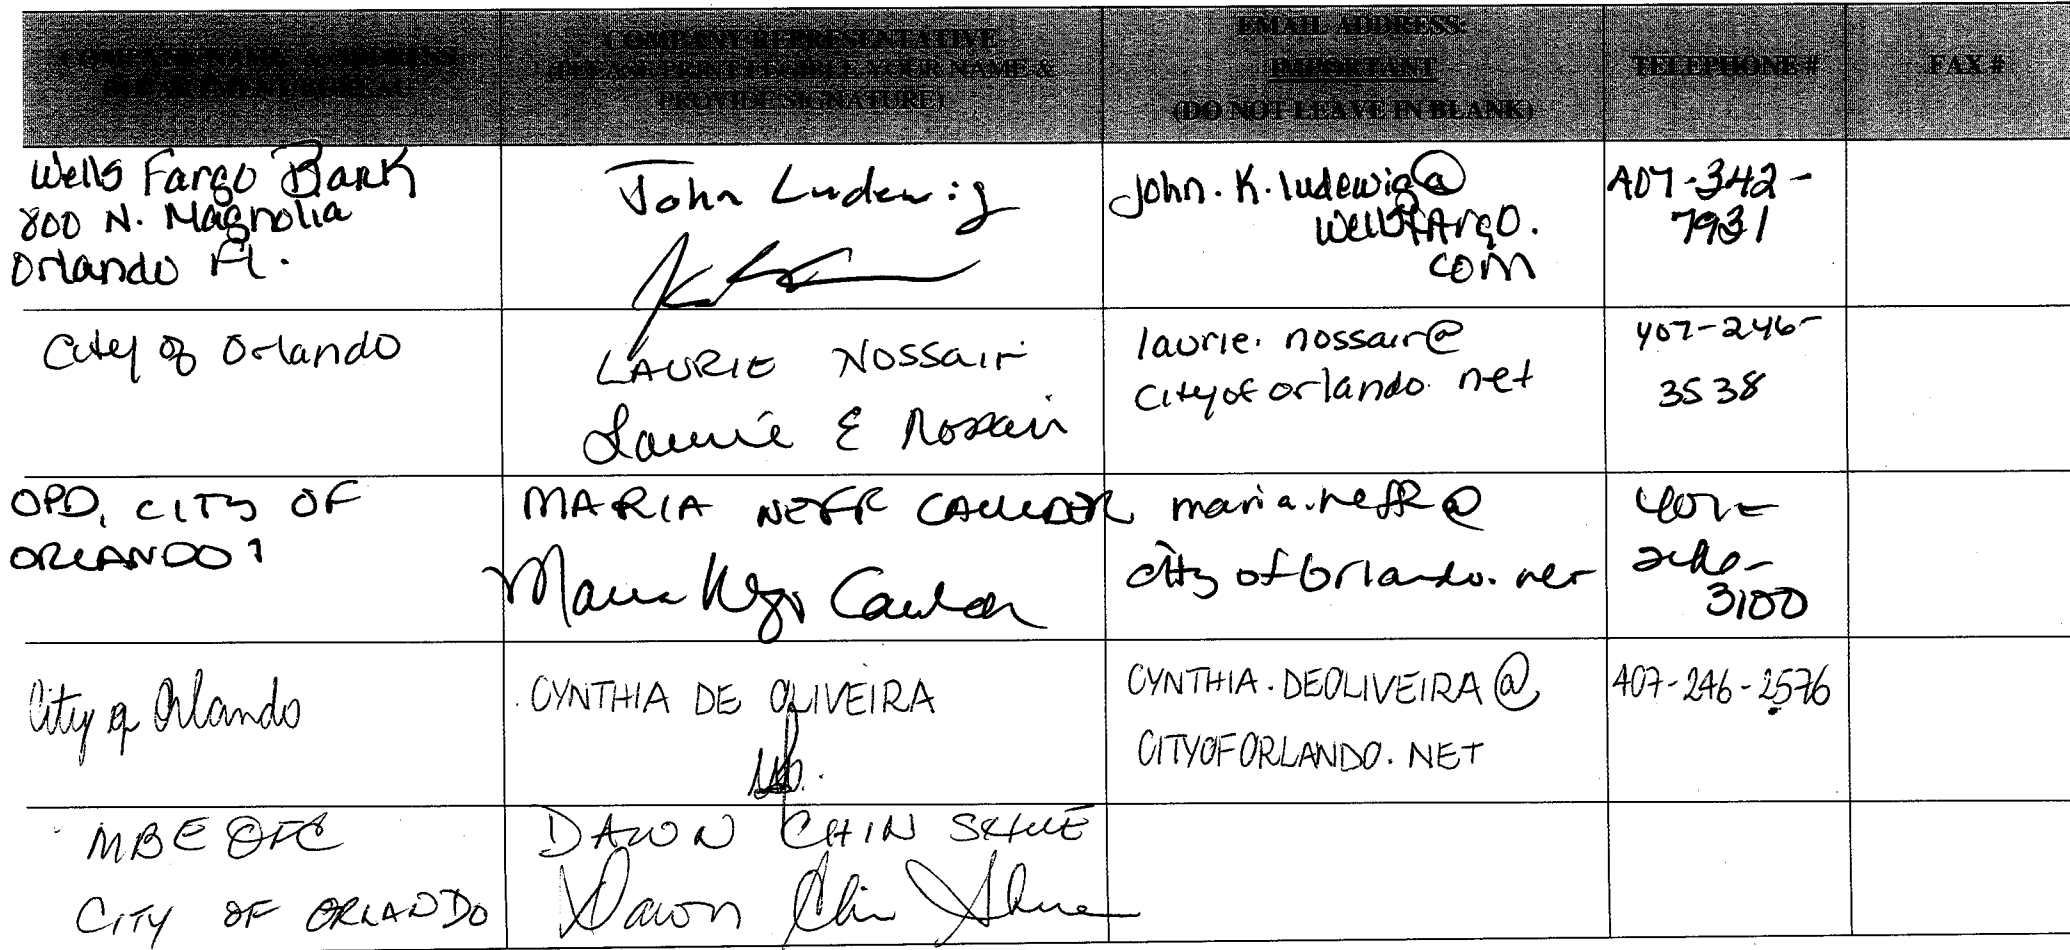 COMPANY NAME & ADDRESS
COMPANY REPRESENTATIVE
(PLEASE PRINT LEGIBLE YOUR NAME &
PROVIDE SIGNATURE)
EMAIL ADDRESS:
IMPORTANT
(DO NOT LEAVE IN BLANK)
TELEPHONE #
FAX #
Wells Fargo Bank
800 N. Magnolia
Orlando Fl.
John Ludewig
john.K.ludewig@
wellsfArgo.
com
407-342-
7931
City of Orlando
LAURIE NOSSair
Laurie E Nossair
laurie.nossair@
cityoforlando.net
407-246-
3538
OPD, CITY OF
ORLANDO
MARIA NEFF
Maria Neff
maria.neff@
cityoforlando.net
407-
3100
City of Orlando
CYNTHIA DE OLIVEIRA
CYNTHIA.DEOLIVEIRA@
CITYOFORLANDO.NET
407-246-2576
MBE OFC
CITY OF ORLANDO
DAWN CHIN SHUE
Dawn Chin Shue